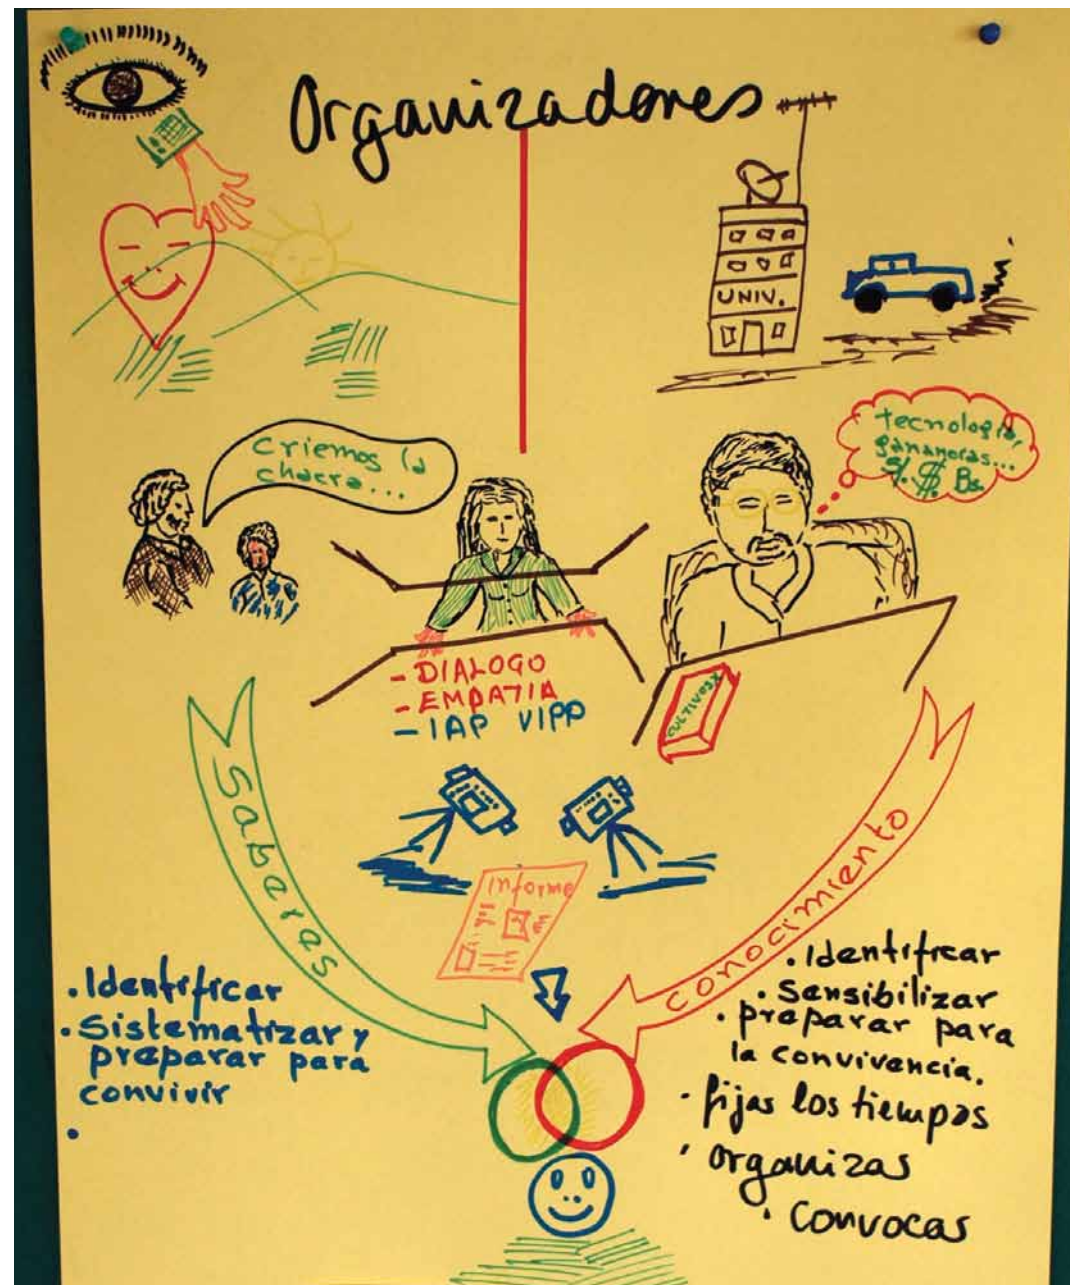 Organizadores
UNIV.
Criemos la
chacra...
tecnología,
ganancias...
S/. $. Bs.
- DIALOGO
- EMPATIA
- IAP VIPP
CULTIVOS
Saberes
conocimiento
Informe
• Identificar
• Sistematizar y
preparar para
convivir
•
• Identificar
• Sensibilizar
• preparar para
la convivencia.
• fijas los tiempos
• organizas
• convocas